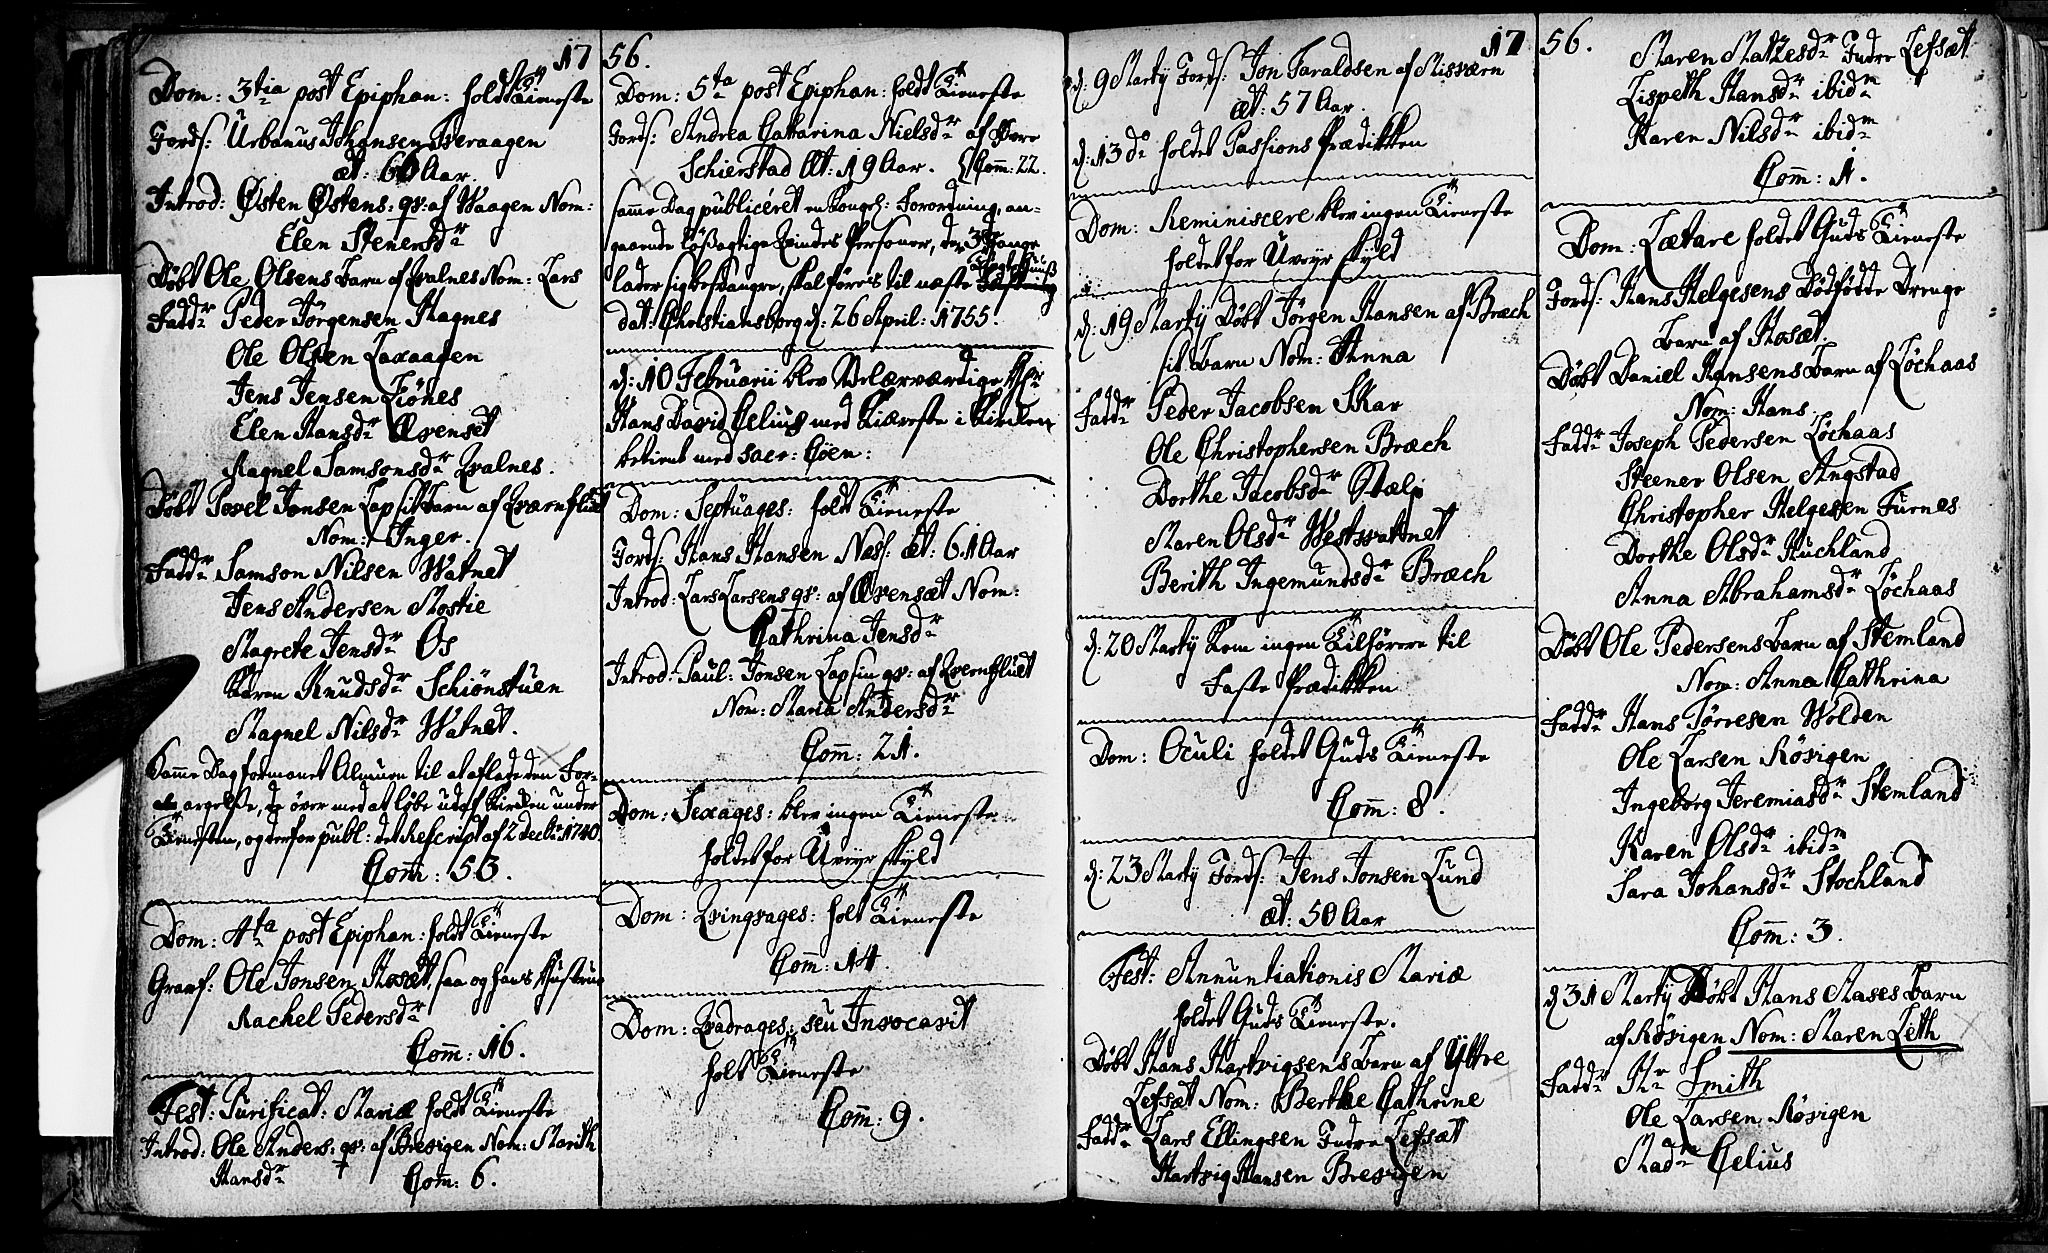 17
Dom: 3tia post Epiphan: holdt Tieneste
Jords: Urbanus Johansen Seraagen
æt: 66 Aar.
Introd: Østen Østens: qv: af Waagen Nom:
Elen Stenersdr
Döbt Ole Olsens Barn af Qvalnes Nom: Lars
Faddr Peder Jörgensen Hagnes
Ole Olsen Laxaagen
Jens Jensen Tiönes
Elen Hansdr Øvenset
Ragnel Samsonsdr Qvalnes.
Döbt Povel Jonsen Lap sit Barn af Qværnflúdt
Nom: Inger.
Faddr Samson Nilsen Watnet
Jens Andersen Mostie
Magrete Jensdr Os
Karen Knudsdr Schiönstuen
Magnel Nilsdr Watnet.
Samme Dag formanet Almuen til at aflade den For-
argelse, de över med at löbe ud af Kirken under
Tienesten, og derfor publ: det Rescript af 2 Decbr 1740.
Com̄: 53.
Dom: 4ta post Epiphan: holdt Tieneste
Graaf: Ole Jonsen Mosæt, saa og hans Hustrue
Rachel Pedersdr
Com̄: 16.
Fest: Purificat: Mariæ holdt Tieneste
Introd: Ole Anders: qv: af Bresigen Nom: Marith
Hansdr Com̄: 6.
56.
Dom: 5ta post Epiphan: holdt Tieneste
Jords: Andrea Catharina Nielsdr af
Schierstad Æt: 19 Aar. Com̄: 22.
samme Dag publicéret en Kongel: Forordning, an-
gaaende lösagtige Qvindes Personer, der 3 Gange
lader sig besvangre, skal föres til næste
dat: Christiansborg d: 26 April: 1755.
d: 10 Februarii blev Velærværdige Hr
Hans David Celius med Kiæreste i Kirken
betient med sacr: Cöen:
Dom: Septuages: holdt Tieneste
Jords: Hans Hansen Næss: æt: 61 Aar
Introd: Lars Larsens qv: af Øvensæt Nom:
Cathrina Jensdr
Introd: Paul: Jonsen Lap sin qv: af Qvernflúdt
Nom: Maria Andersdr
Com̄: 21.
Dom: Sexages: blev ingen Tieneste
holdet for Uveyr skyld
Dom: Qvinqvages: holt Tieneste
Com̄: 14.
Dom: Qvadrages: seu Invocavit
holt Tieneste
Com̄: 9.
17
d: 9 Martij Jords: Jon Taraldsen af Misværn
æt: 57 Aar.
d: 13 do holdet Passions Prædikken
Dom: Reminiscere blev ingen Tieneste
holdet for Uveyr skyld
d: 19 Martij Döbt Jörgen Hansen af Bræch
sit Barn Nom: Anna
Faddr Peder Jacobsen Skar
Ole Christophersen Bræch
Dorthe Jacobsdr Stælp
Maren Olsdr Westvattnet
Berith Ingemundsdr Bræch
d: 20 Martij Kom ingen Tilhörere til
Faste Prædikken
Dom: Oculi holdet Guds Tieneste
Com̄: 8.
d: 23 Martij Jords: Jens Jonsen Lund
æt: 50 Aar
Fest: Annuntiationis Mariæ
holdet Guds Tieneste.
Döbt Hans Hartvigsens Barn af Yttre
Lefsæt Nom: Berthe Cathrine
Faddr Lars Ellingsen Indre Lefsæt
Hartvig Hansen Bresigen
56.
Maren Mattesdr Indre Lefsæt
Lispeth Hansdr ibidm
Karen Nilsdr ibidm
Com̄: 1.
Dom: Lætare holdet Guds Tieneste
Jords: Hans Helgesens Dödfödte Drenge
Barn af Mosæt
Döbt Daniel Hansens Barn af Löchaas
Nom: Hans
Faddr Joseph Pedersen Löchaas
Steener Olsen Angstad
Christopher Helgesen Furnes
Dorthe Olsdr Huchland
Anna Abrahamsdr Löchaas
Döbt Ole Pedersens Barn af Stemland
Nom: Anna Cathrina
Faddr Hans Törresen Wolden
Ole Larsen Rösigen
Ingeborg Jeremiasdr Stemland
Karen Olsdr ibidm
Sara Johansdr Stochland
Com̄: 3.
d 31 Martij Döbt Hans Mases Barn
af Rösigen Nom: Maren Leth
Faddr Hr Smith
Ole Larsen Rösigen
Madme Celius